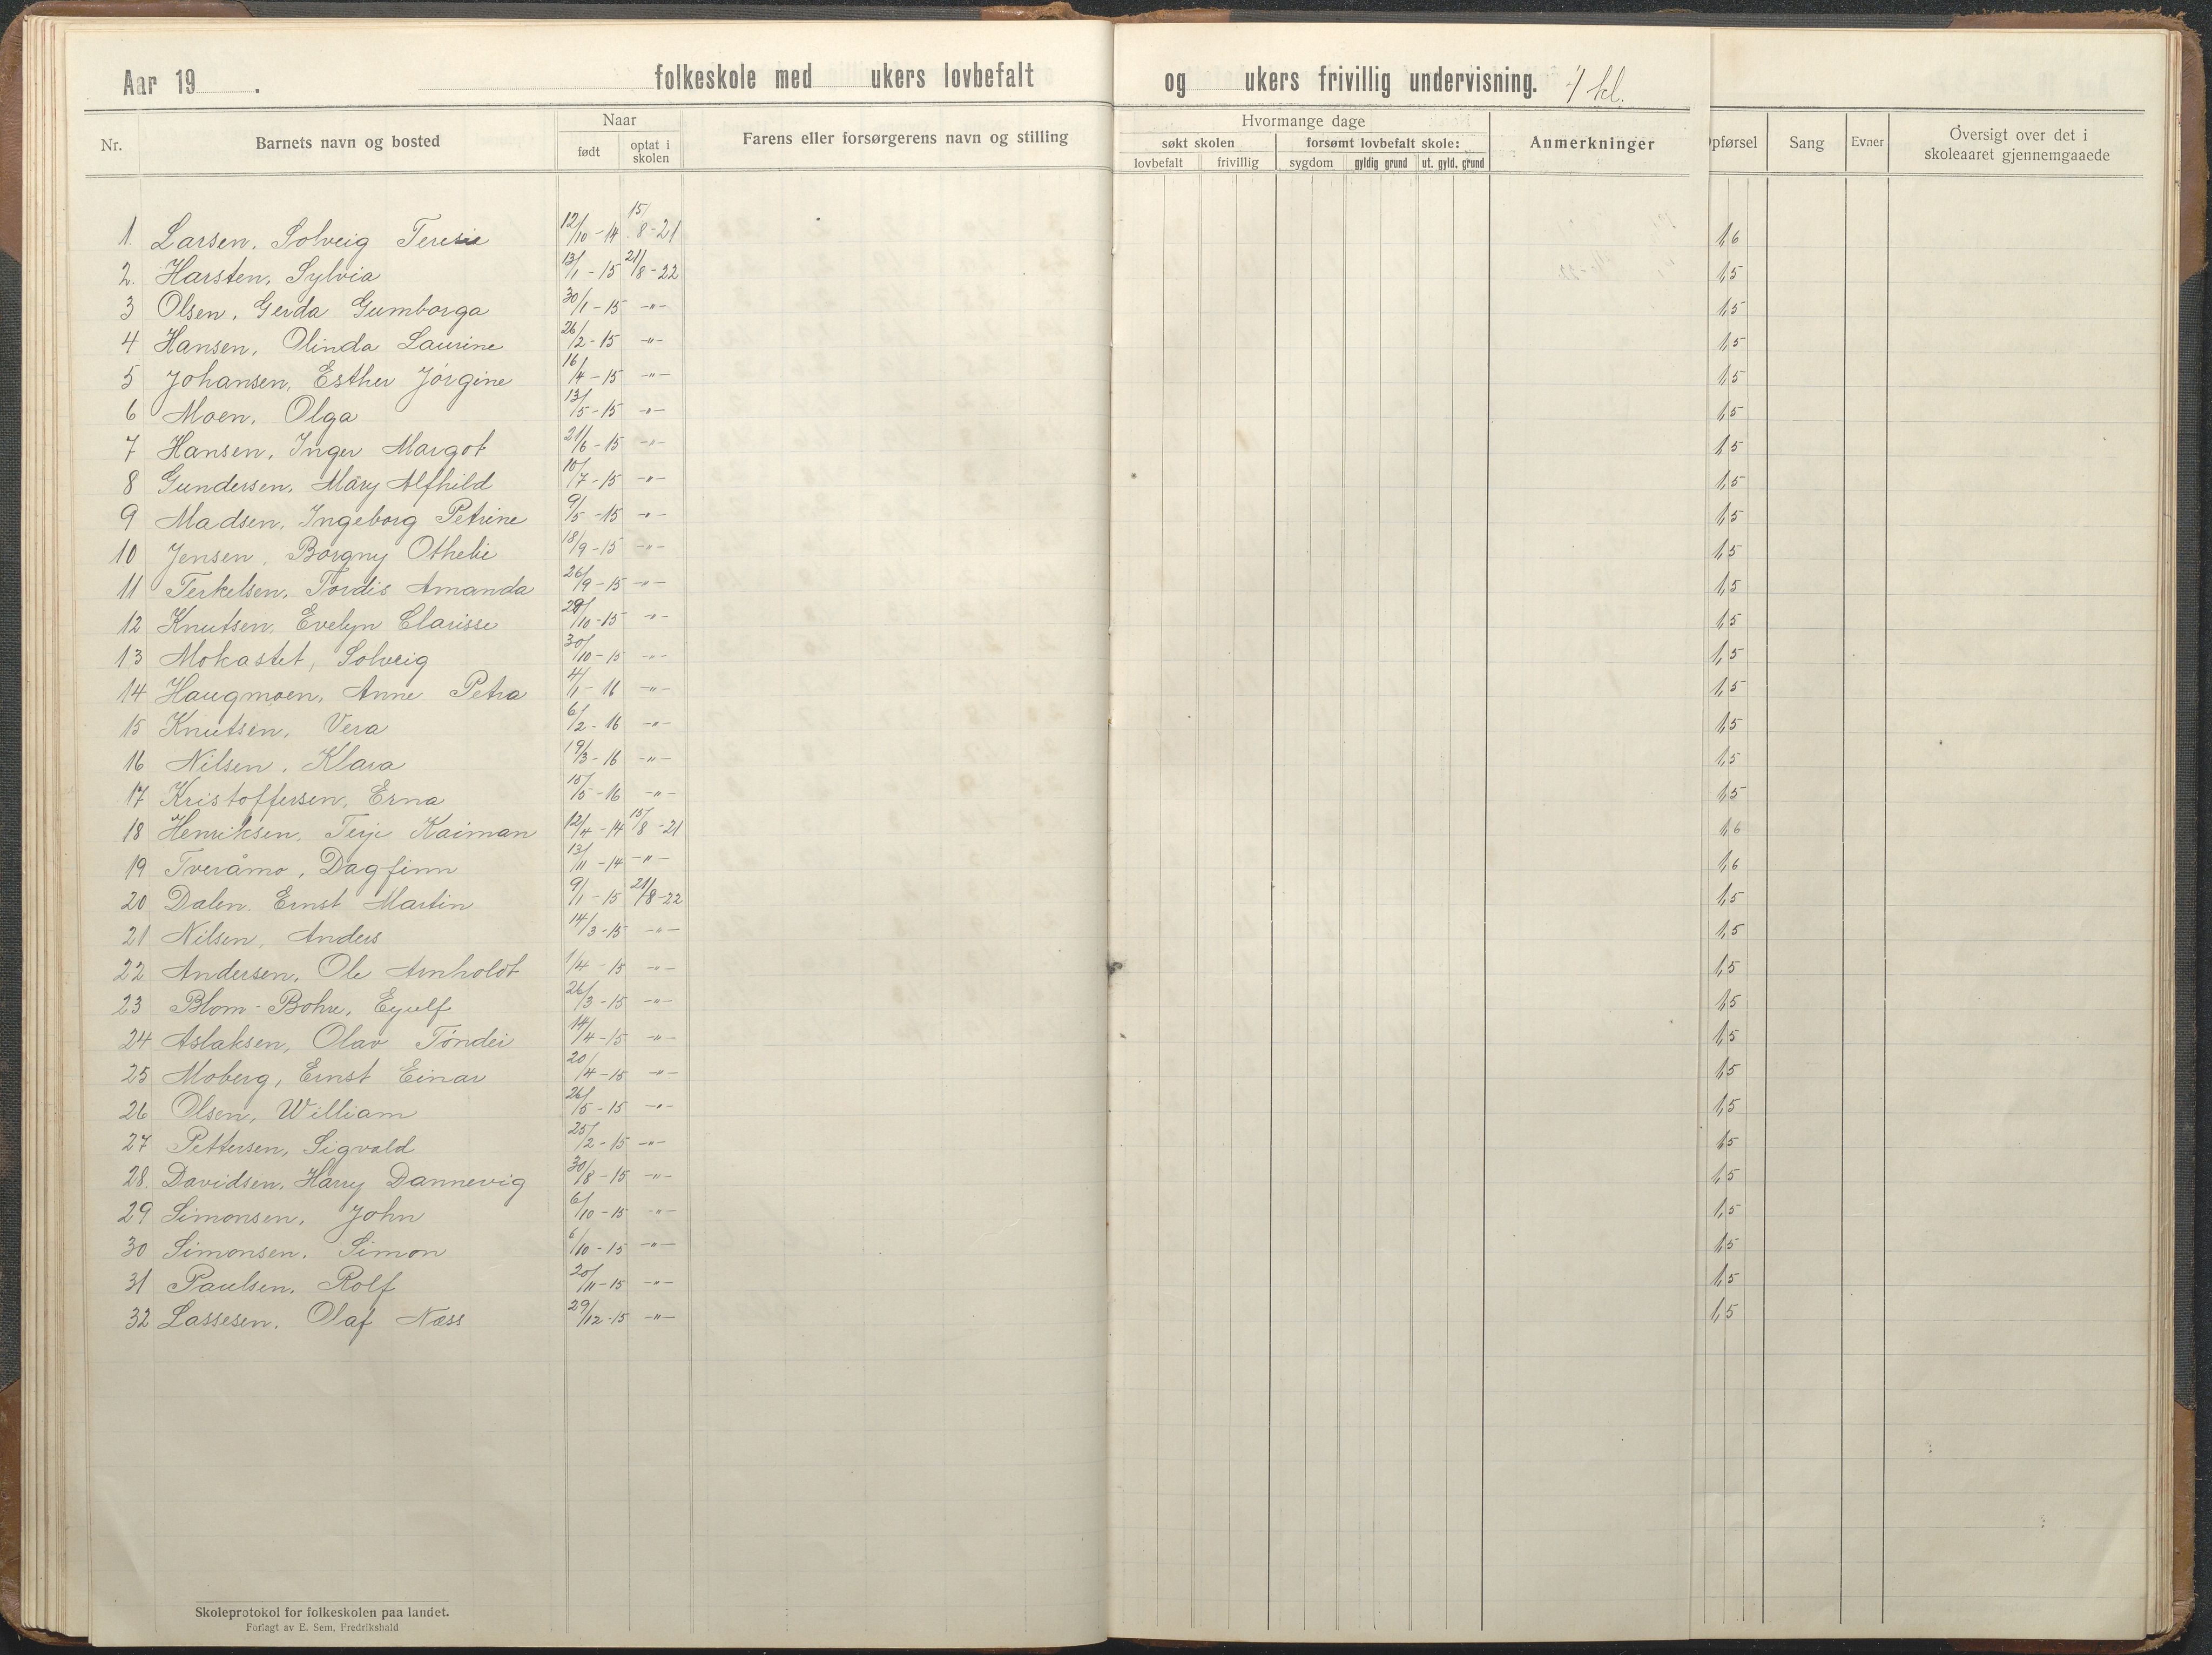 Aar 19 . folkeskole med ukers lovbefalt og ukers frivillig undervisning. 4 kl.
Nr. Barnets navn og bosted Naar født optat i skolen Farens eller forsørgerens navn og stilling Hvormange dage søkt skolen lovbefalt frivillig forsømt lovbefalt skole: sygdom gyldig grund ut. gyld. grund Anmerkninger pførsel Sang Evner Oversigt over det i skoleaaret gjennemgaaede
1. Larsen, Solveig Teresie 12/10-14 15/8-21 1,6
2. Harsten, Sylvia 13/1-15 21/8-22 1,5
3 Olsen, Gerda Gumborga 30/1-15 -"- 1,5
4 Hansen, Olinda Laurine 26/2-15 -"- 1,5
5 Johansen, Esther Jörgine 16/4-15 -"- 1,5
6 Moen, Olga 13/5-15 -"- 1,5
7 Hansen, Inger Margot 21/6-15 -"- 1,5
8 Gundersen, Mary Alfhild 10/7-15 -"- 1,5
9 Madsen, Ingeborg Petrine 9/5-15 -"- 1,5
10 Jensen, Borgny Othelie 18/9-15 -"- 1,5
11 Terkelsen, Tordis Amanda 26/9-15 -"- 1,5
12 Knutsen, Evelyn Clarisse /10-15 -"- 1,5
13 Mokastet, Solveig 30/10-15 -"- 1,5
14 Haugmoen, Anne Petra 4/1-16 -"- 1,5
15 Knutsen, Vera 6/2-16 -"- 1,5
16 Nilsen, Klara 19/3-16 -"- 1,5
17 Kristoffersen, Erna 15/5-16 -"- 1,5
18 Henriksen, Terje Kaiman 12/4-14 15/8-21 1,6
19 Tveråmo, Dagfinn 13/11-14 -"- 1,6
20 Dalen, Ernst Martin 9/1-15 21/8-22 1,5
21 Nilsen, Anders 14/3-15 -"- 1,5
22 Andersen, Ole Arnholdt 1/4-15 -"- 1,5
23 Blom-Bohre, Eyulf 26/3-15 -"- 1,5
24 Aslaksen, Olav Töndei 14/4-15 -"- 1,5
25 Moberg, Ernst Einar 20/4-15 -"- 1,5
26 Olsen, William 26/5-15 -"- 1,5
27 Pettersen, Sigvald 25/2-15 -"- 1,5
28. Davidsen, Harry Dannevig 30/8-15 -"- 1,5
29 Simonsen, John 6/10-15 -"- 1,5
30 Simonsen, Simon 6/10-15 -"- 1,5
31 Paulsen, Rolf 20/11-15 -"- 1,5
32 Lassesen, Olaf Næss 29/12-15 -"- 1,5
Skoleprotokol for folkeskolen paa landet.
Forlagt av E. Sem, Fredrikshald